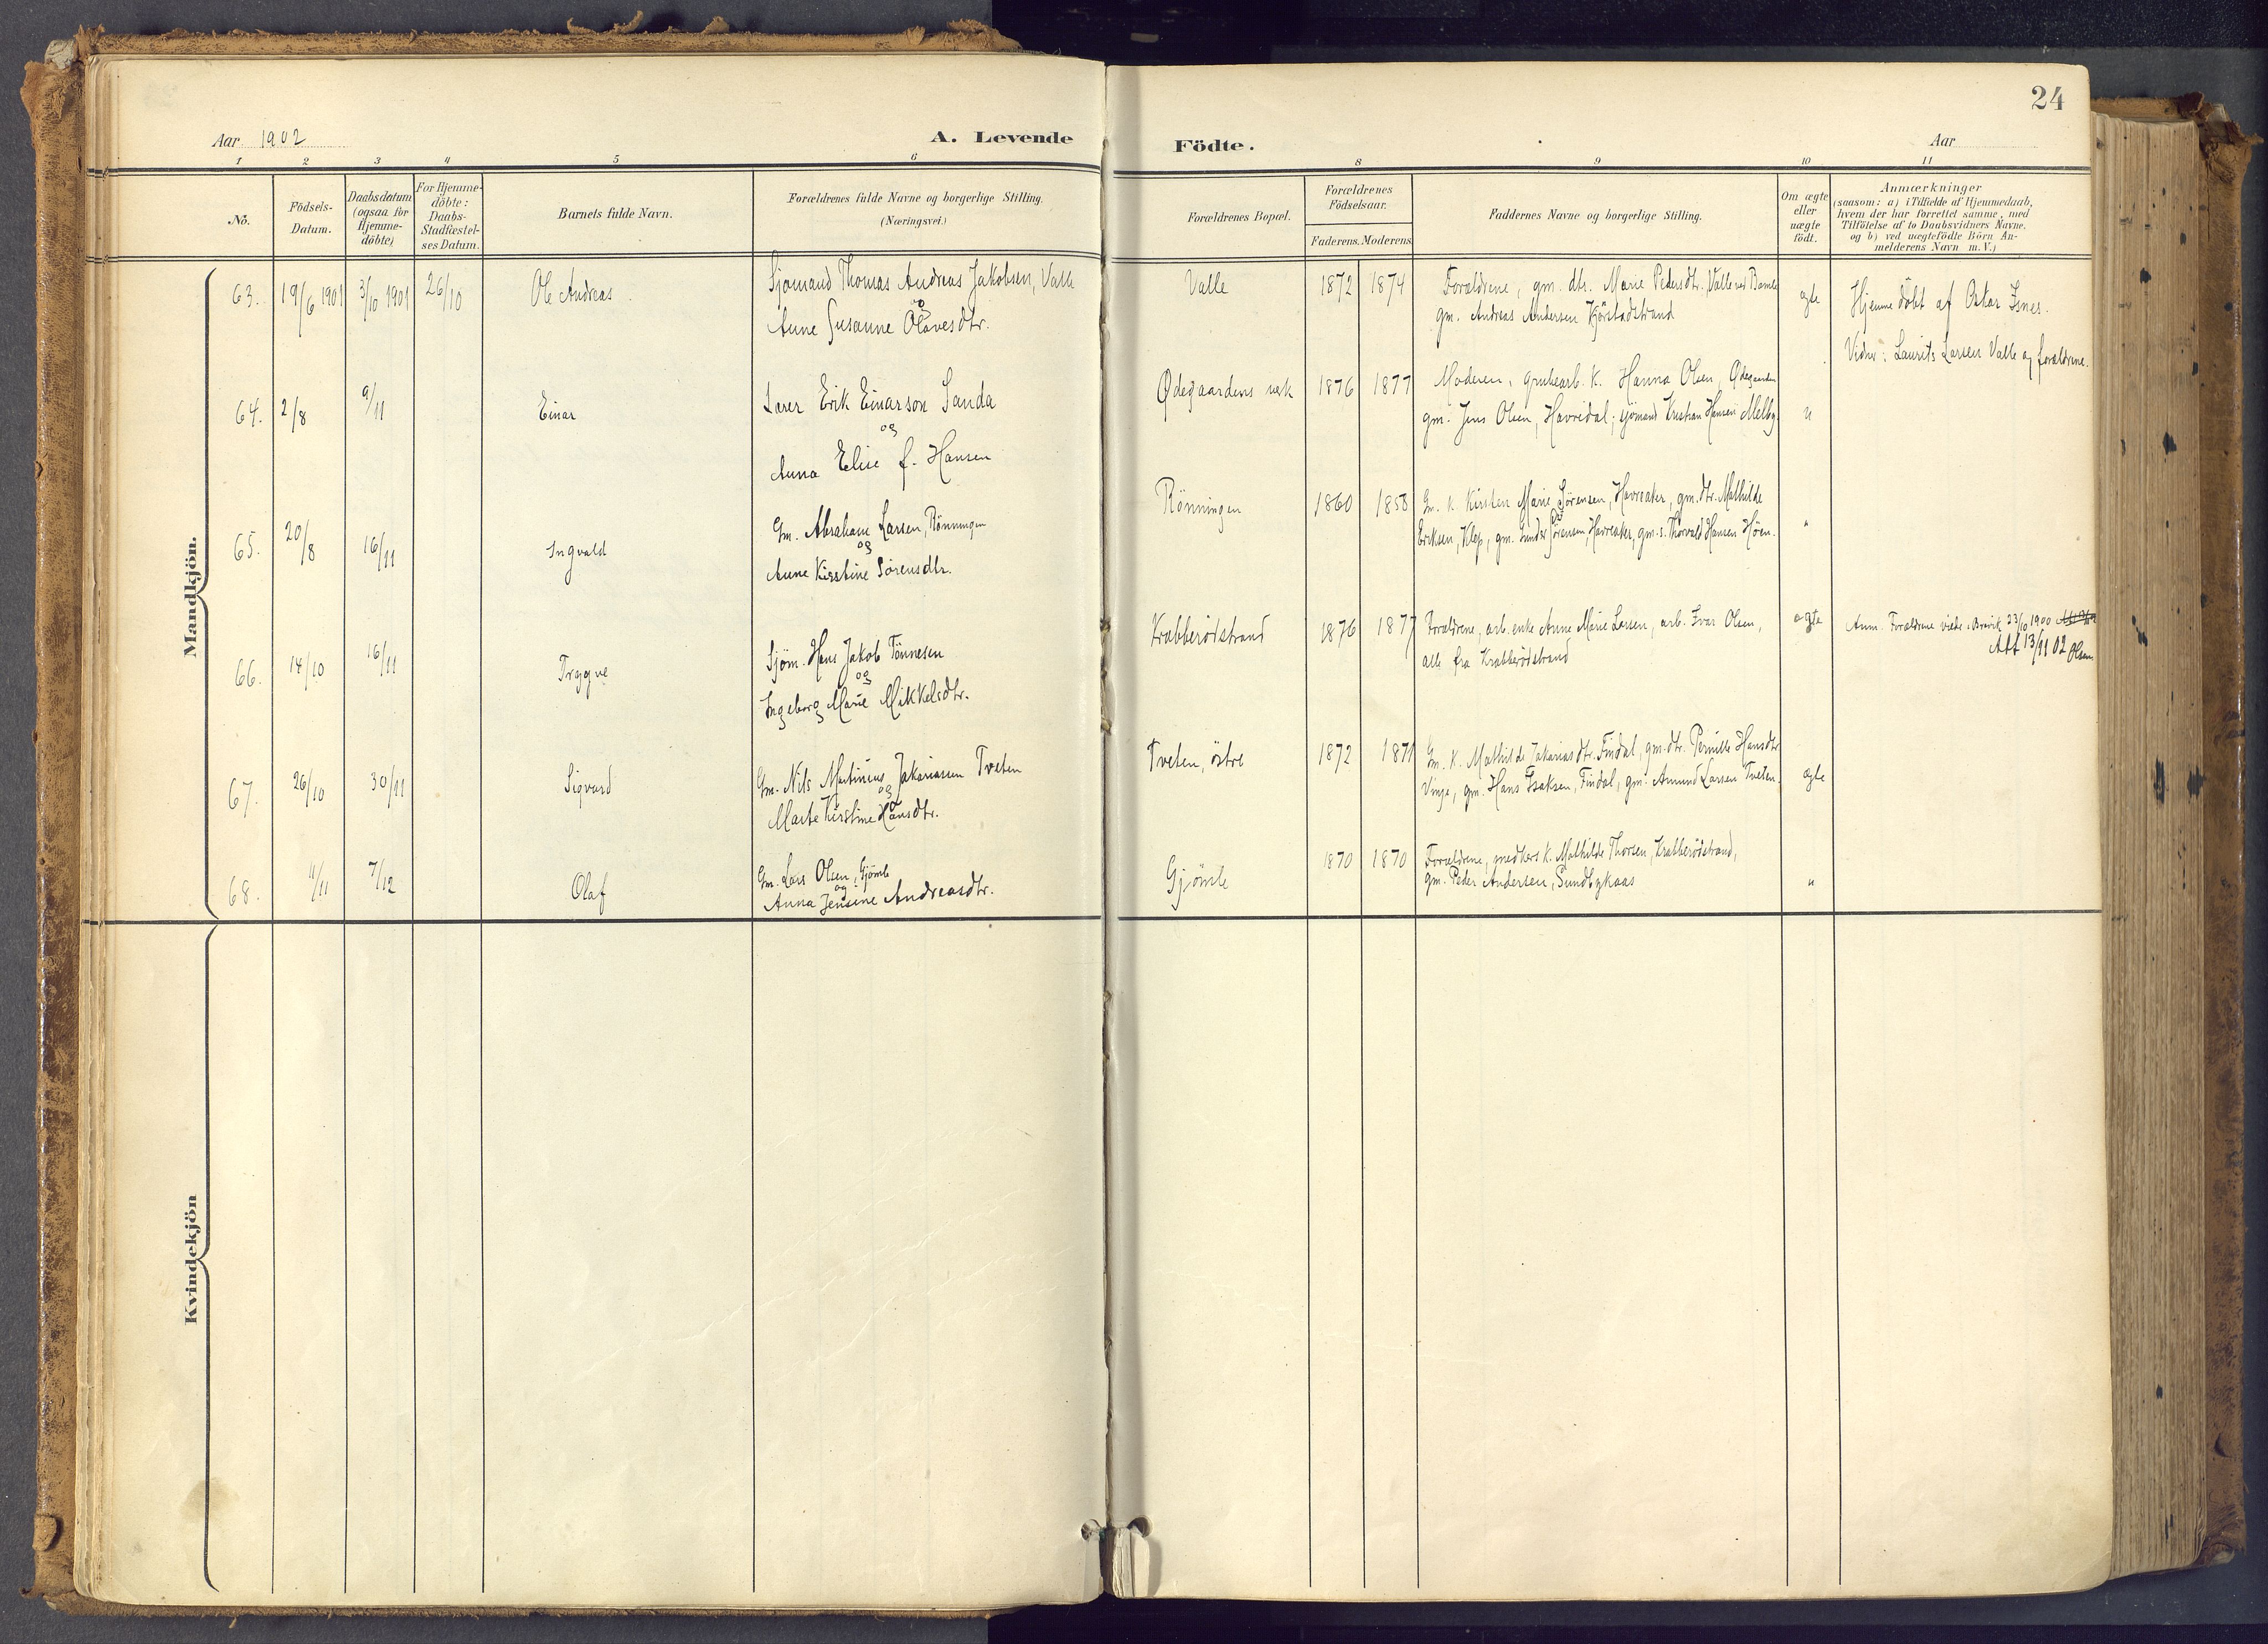 24
Aar 1902
A. Levende
Födte.
Aar
1 2 3 4 5 6 8 9 10 11
No.
Födsels-
Datum.
Daabsdatum
(ogsaa for
Hjemme-
döbte)
For Hjemme-
döbte:
Daabs-
Stadfæstel-
ses Datum.
Barnets fulde Navn.
Forældrenes fulde Navne og borgerlige Stilling.
(Næringsvei.)
Forældrenes Bopæl.
Forældrenes
Födselsaar.
Faderens. Moderens.
Faddernes Navne og borgerlige Stilling.
Om ægte
eller
uægte
födt.
Anmærkninger
(saasom: a) i Tilfælde af Hjemmedaab,
hvem der har forrettet samme, med
Tilföielse af to Daabsvidners Navne,
og b) ved uægtefödte Börn An-
melderens Navn m. V.)
Mandkjön.
63. 19/6 1901 3/10 1901 26/10 Ole Andreas
Sjømand Thomas Andreas Jakobsen, Valle
og
Anne Susanne Olavesdtr.
Valle 1872 1874
Forældrene, gm. dtr. Marie Pedersdtr., Valle ved Bamle
gm. Andreas Andersen Kjørstadstrand
ægte
Hjemmedöbt af Oskar Isnes.
Vidner: Laurits Larsen Valle og forældrene.
64. 2/8 9/11 Einar
Lærer Erik Einarson Sanda
og
Anna Elise f. Hansen
Ødegaardens verk 1876 1877
Moderen, grubearb. K. Hanna Olsen, Ødegaarden
gm. Jens Olsen, Havredal; sjømand Kristian Hansen Melby.
"
65. 20/8 16/11 Ingvald
Gm. Abraham Larsen, Rønningen
og
Anne Kirstine Sørensdtr.
Rönningen 1860 1858
Gm. K. Kirsten Marie Sørensen, Havreaker, gm. dtr. Mathilde
Eriksen, Klep, gm. Gunder Sørensen, Havreaker, gm. s. Thorvald Hansen Høen.
"
66. 14/10 16/11 Trygve
Sjöm. Hans Jakob Tönnesen
og
Ingeborg Marie Mikkelsdtr.
Krabberödstrand 1876 1877
Forældrene, arb. enke Anne Marie Larsen, arb. Ivar Olsen,
alle fra Krabberödstrand
ægte
Anm. Forældrene viede i Brevik 23/10 1900
Att 13/11 02 Olsen
67. 26/10 30/11 Sigvard
Gm. Nils Martinius Jakariassen Tveten
og
Marte Kirstine Hansdtr.
Tveten, östre 1872 1871
Gm. K. Mathilde Jakariasdtr. Findal, gm. dtr. Pernille Hansdtr.
Vinje, gm. Hans Isaksen, Findal, gm. Amund Larsen Tveten.
ægte
68. 11/11 7/12 Olaf
Gm. Lars Olsen, Gjömle
og
Anna Jensine Andreasdtr.
Gjömle 1870 1870
Forældrene, snedkers K. Mathilde Thorsen, Krabberödstrand,
gm. Peder Andersen, Sundbykaas
"
Kvindekjön